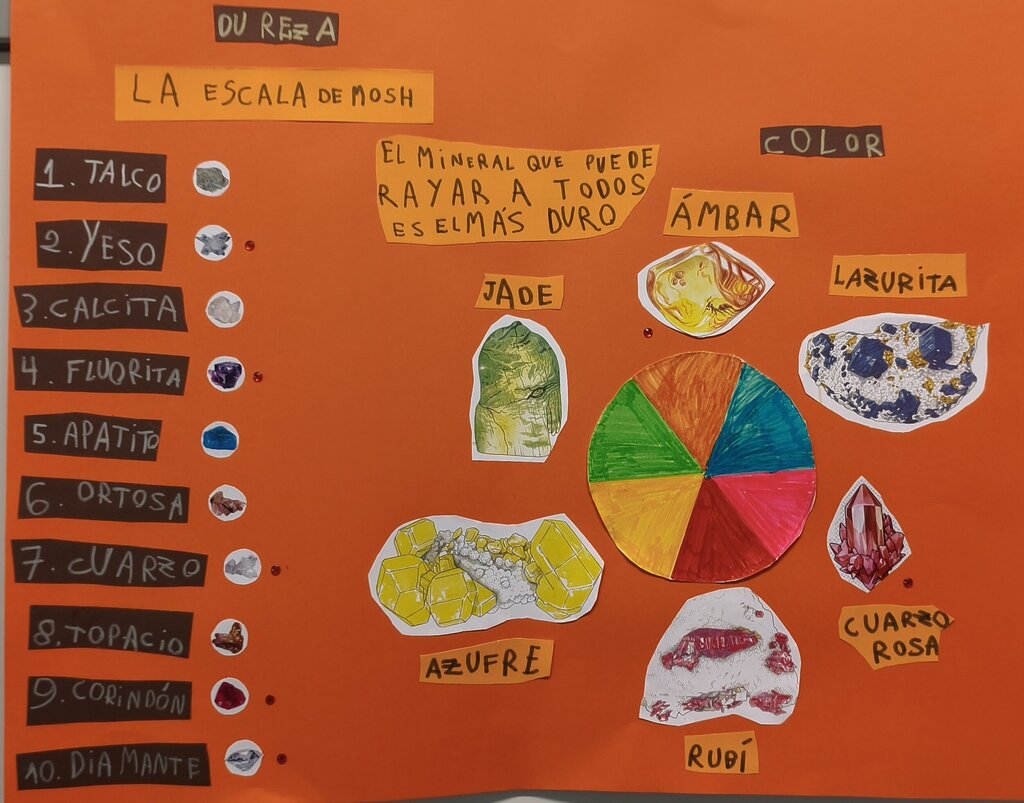 DUREZA
LA ESCALA DE MOSH
1. TALCO
2. YESO
3. CALCITA
4. FLUORITA
5. APATITO
6. ORTOSA
7. CUARZO
8. TOPACIO
9. CORINDÓN
10. DIAMANTE
EL MINERAL QUE PUEDE
RAYAR A TODOS
ES EL MÁS DURO
COLOR
ÁMBAR
JADE
LAZURITA
AZUFRE
CUARZO
ROSA
RUBÍ